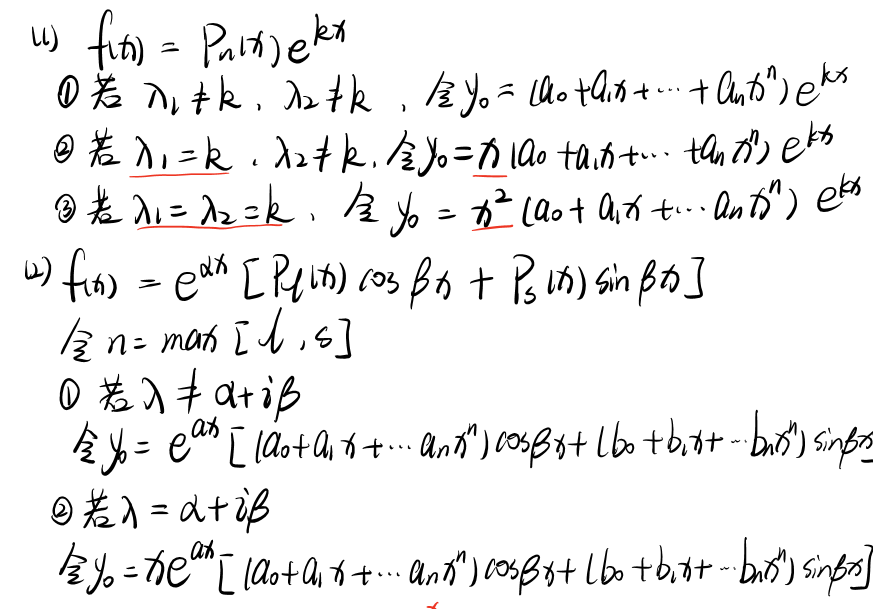 (1) f(x) = Pn(x)e^{kx}
① 若 λ₁≠k , λ₂≠k , 令y₀ = (a₀+a₁x+⋯+aₙxⁿ)e^{kx}
② 若 λ₁=k , λ₂≠k, 令y₀=x(a₀+a₁x+⋯+aₙxⁿ)e^{kx}
③ 若 λ₁=λ₂=k , 令 y₀ = x²(a₀+a₁x+⋯aₙxⁿ) e^{kx}
(2) f(x) = e^{αx} [Pl(x) cos βx + Ps(x) sin βx]
令 n = max [l , s]
① 若 λ ≠ α+iβ
令y₀ = e^{ax} [(a₀+a₁x+⋯aₙxⁿ)cosβx+(b₀+b₁x+⋯bₙxⁿ)sinβx
② 若 λ = α+iβ
令y₀=xe^{ax}[(a₀+a₁x+⋯aₙxⁿ)cosβx+(b₀+b₁x+⋯bₙxⁿ)sinβx]